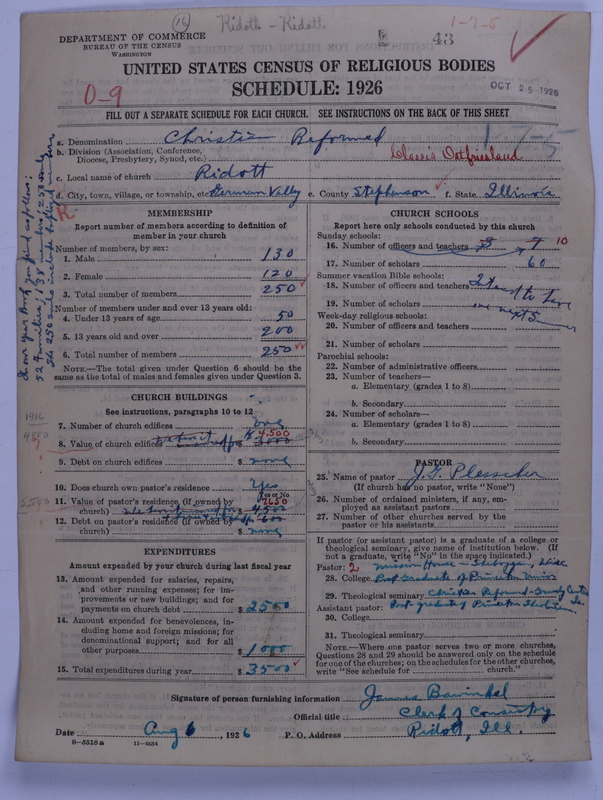 (16) Ridott - Ridott. 1-7-5
DEPARTMENT OF COMMERCE
BUREAU OF THE CENSUS
WASHINGTON
43
UNITED STATES CENSUS OF RELIGIOUS BODIES
SCHEDULE: 1926
OCT 25 1926
0-9
FILL OUT A SEPARATE SCHEDULE FOR EACH CHURCH. SEE INSTRUCTIONS ON THE BACK OF THIS SHEET
a. Denomination Christian Reformed
b. Division (Association, Conference, Diocese, Presbytery, Synod, etc.) Classis Ostfriesland
c. Local name of church Ridott
d. City, town, village, or township, etc. German Valley e. County Stephenson f. State Illinois
MEMBERSHIP
Report number of members according to definition of member in your church
Number of members, by sex:
1. Male 130
2. Female 120
3. Total number of members 250
Number of members under and over 13 years old:
4. Under 13 years of age 50
5. 13 years old and over 200
6. Total number of members 250
NOTE.—The total given under Question 6 should be the same as the total of males and females given under Question 3.
CHURCH BUILDINGS
See instructions, paragraphs 10 to 12
7. Number of church edifices one
8. Value of church edifices $ 4,500
1916
9. Debt on church edifices $ none
10. Does church own pastor's residence Yes
Yes or No
11. Value of pastor's residence (if owned by church) $ 4500
12. Debt on pastor's residence (if owned by church) $ none
EXPENDITURES
Amount expended by your church during last fiscal year
13. Amount expended for salaries, repairs, and other running expenses; for improvements or new buildings; and for payments on church debt $ 2500
14. Amount expended for benevolences, including home and foreign missions; for denominational support; and for all other purposes $ 1000
15. Total expenditures during year $ 3500
CHURCH SCHOOLS
Report here only schools conducted by this church
Sunday schools:
16. Number of officers and teachers 10
17. Number of scholars 60
Summer vacation Bible schools:
18. Number of officers and teachers
19. Number of scholars one next Summer
Week-day religious schools:
20. Number of officers and teachers
21. Number of scholars
Parochial schools:
22. Number of administrative officers
23. Number of teachers—
a. Elementary (grades 1 to 8)
b. Secondary
24. Number of scholars—
a. Elementary (grades 1 to 8)
b. Secondary
PASTOR
25. Name of pastor J. J. Plesscher
(If church has no pastor, write "None")
26. Number of ordained ministers, if any, employed as assistant pastors
27. Number of other churches served by the pastor or his assistants
If pastor (or assistant pastor) is a graduate of a college or theological seminary, give name of institution below. (If not a graduate, write "No" in the space indicated.)
Pastor: 2 Mission House - Sheboygan, Wisc
28. College Post Graduate of Princeton
29. Theological seminary Christian Reformed - Grundy Center Ia.
Assistant pastor: Post graduate of Princeton
30. College
31. Theological seminary
NOTE.—Where one pastor serves two or more churches, Questions 28 and 29 should be answered only on the schedule for one of the churches; on schedules for the other churches, write "See schedule for church."
Signature of person furnishing information
Official title Clerk of Consistory
Date Aug 6, 1926 P. O. Address Ridott, Ill.
8-5518a 11-6684